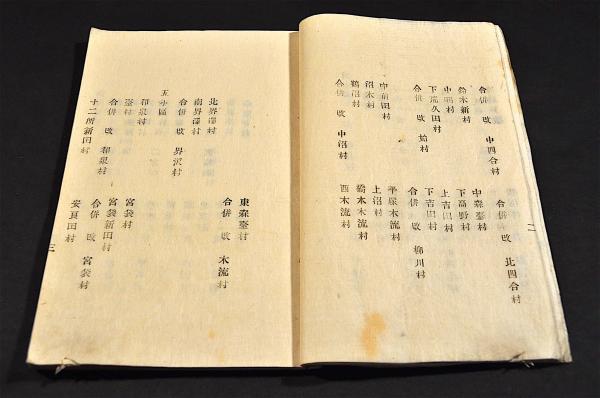 合併 改 中四合村
鈴木新村
下荒久田村
合併 改
中前田村
沼木村
鶴沼村
合併 改 中沼村
合併 改 北四合村
中森臺村
下高野村
上吉田村
下吉田村
合併 改 柳川村
平塚木流村
上沼村
橋本木流村
西木流村
二
北界澤村
南界澤村
合併 改 界沢村
五小區
和泉村
臺村
合併 改 和泉村
十二所新田村
東森臺村
合併 改 木流村
宮袋村
宮袋新田村
合併 改 宮袋村
安良田村
三